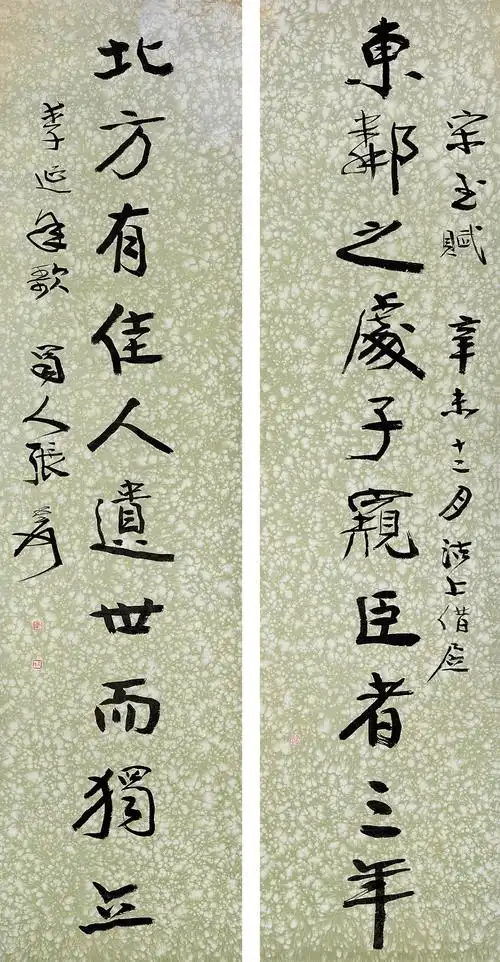 宋玉賦 辛未十二月沽上借
東鄰之處子窺臣者三年
北方有佳人遺世而獨立
李延年歌 蜀人張爰